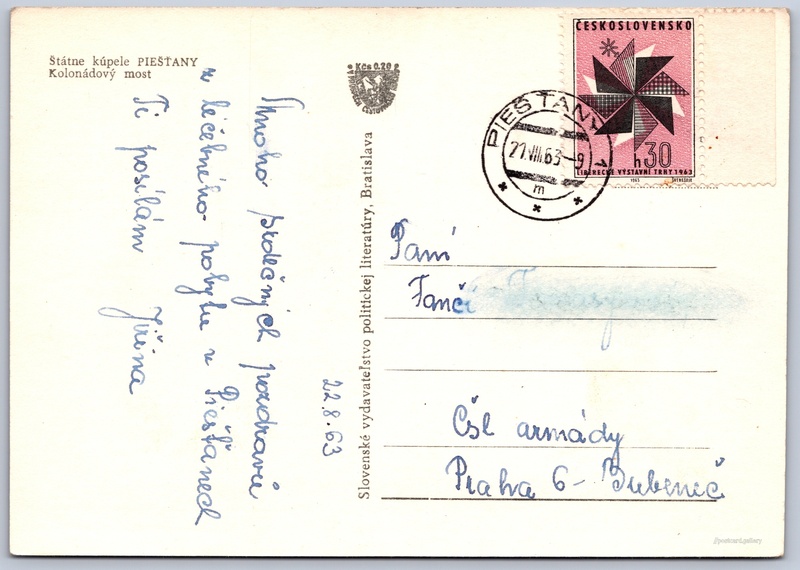 Štátne kúpele PIEŠŤANY
Kolonádový most
Mnoho srdečných pozdravů
z léčebného pobytu v Piešťanech
Ti posílám Jiřina
22.8.63
Slovenské vydavateľstvo politickej literatúry, Bratislava
Kčs 0.20
ČESKOSLOVENSKO
h 30
LIBERECKÉ VÝSTAVNÍ TRHY 1963
1963
PIEŠŤANY 1
VIII.63-9
m
Paní
Fanči
Čsl armády
Praha 6 - Bubeneč